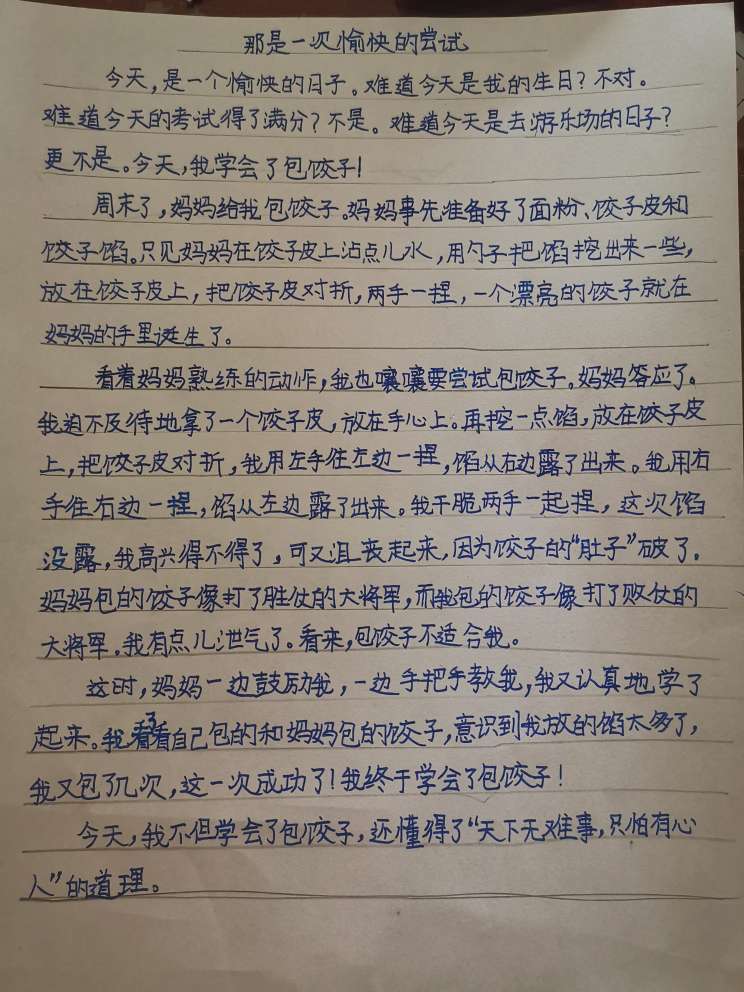 那是一次愉快的尝试
今天,是一个愉快的日子。难道今天是我的生日?不对。
难道今天的考试得了满分?不是。难道今天是去游乐场的日子?
更不是。今天,我学会了包饺子!
周末了,妈妈给我包饺子。妈妈事先准备好了面粉、饺子皮和
饺子馅。只见妈妈在饺子皮上沾点儿水,用勺子把馅挖出来一些,
放在饺子皮上,把饺子皮对折,两手一捏,一个漂亮的饺子就在
妈妈的手里诞生了。
看着妈妈熟练的动作,我也嚷嚷要尝试包饺子。妈妈答应了。
我迫不及待地拿了一个饺子皮,放在手心上。再挖一点馅,放在饺子皮
上,把饺子皮对折,我用左手往左边一捏,馅从右边露了出来。我用右
手往右边一捏,馅从左边露了出来。我干脆两手一起捏,这次馅
没露,我高兴得不得了,可又沮丧起来,因为饺子的“肚子”破了。
妈妈包的饺子像打了胜仗的大将军,而我包的饺子像打了败仗的
大将军。我有点儿泄气了。看来,包饺子不适合我。
这时,妈妈一边鼓励我,一边手把手教我,我又认真地学了
起来。我看了看自己包的和妈妈包的饺子,意识到我放的馅太多了,
我又包了几次,这一次成功了!我终于学会了包饺子!
今天,我不但学会了包饺子,还懂得了“天下无难事,只怕有心
人”的道理。